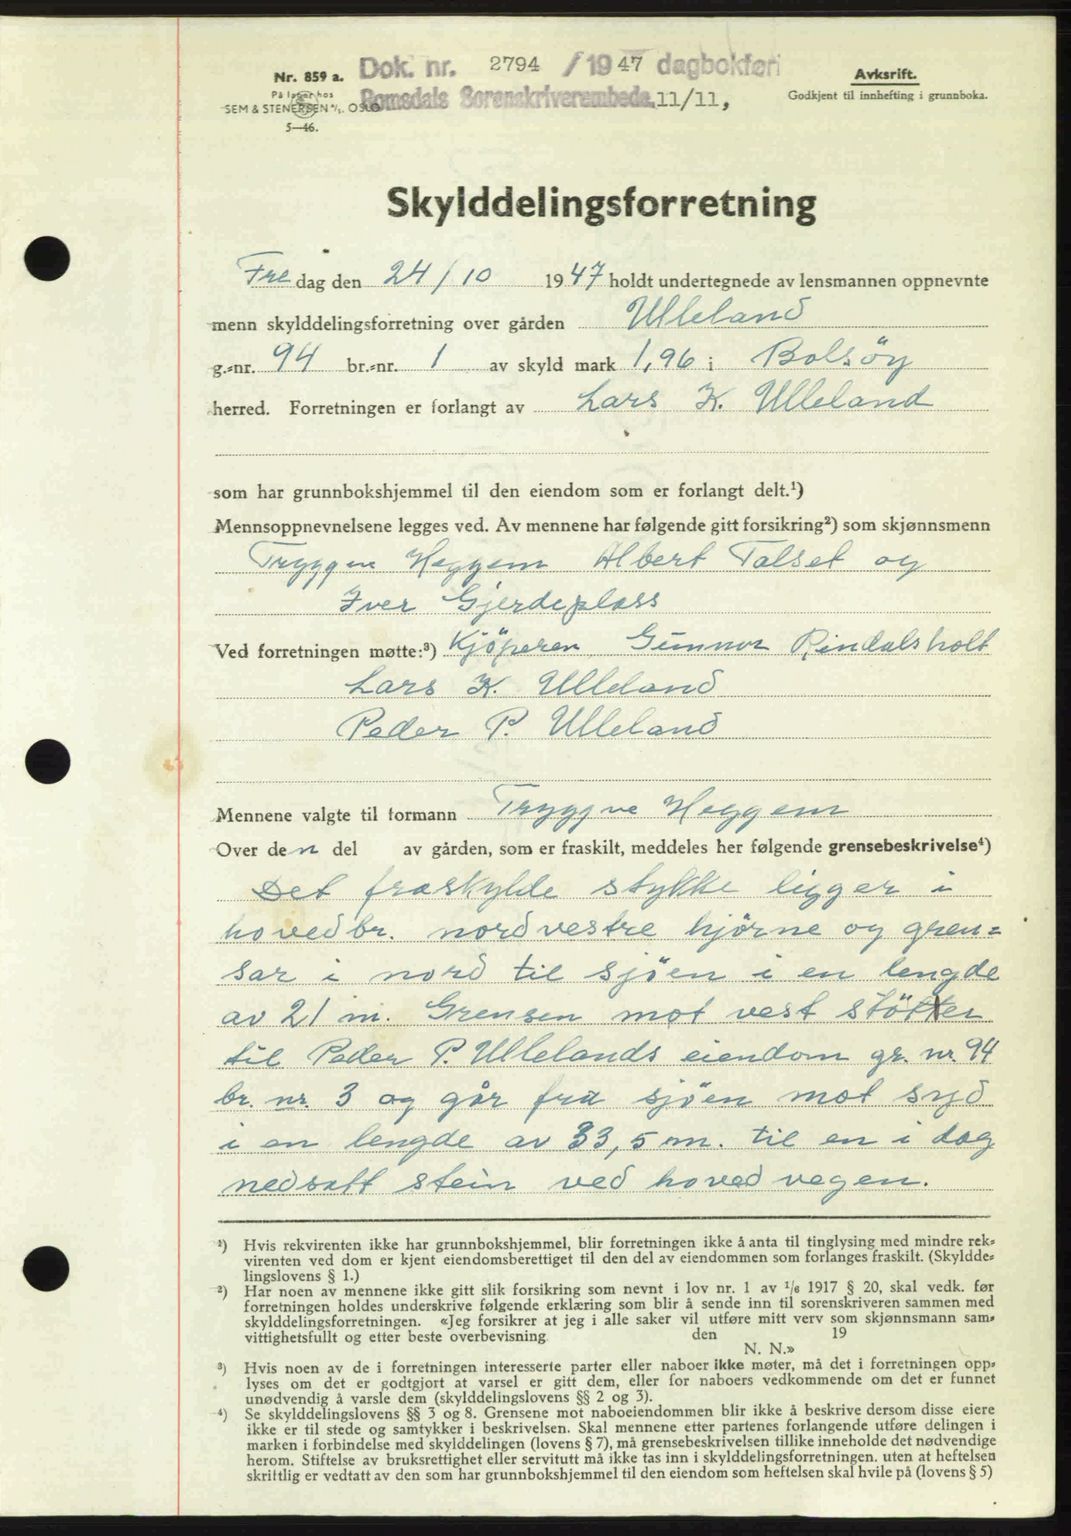 Nr. 859 a.
På lager hos
SEM & STENERSEN A/S. OSLO
5—46.
Dok. nr. 2794 / 1947 dagbokført
Romsdals Sorenskriverembede, 11/11,
Avksrift.
Godkjent til innhefting i grunnboka.
Skylddelingsforretning
Fredag den 24/10 1947 holdt undertegnede av lensmannen oppnevnte
menn skylddelingsforretning over gården Ulleland
g.-nr. 94 br.-nr. 1 av skyld mark 1,96 i Bolsöy
herred. Forretningen er forlangt av Lars K. Ulleland
som har grunnbokshjemmel til den eiendom som er forlangt delt.¹)
Mennsoppnevnelsene legges ved. Av mennene har følgende gitt forsikring²) som skjønnsmenn
Tryggve Heggem Albert Talset og
Iver Gjerdeplass
Ved forretningen møtte:³) Kjöperen Gunnar Rindalsholt
Lars K. Ulleland
Peder P. Ulleland
Mennene valgte til formann Tryggve Heggem
Over den del av gården, som er fraskilt, meddeles her følgende grensebeskrivelse⁴)
Det fraskylde stykke ligger i
hovedbr. nordvestre hjörne og gren=
sar i nord til sjöen i en lengde
av 21 m. Grensen mot vest stötter
til Peder P. Ullelands eiendom gr. nr. 94
br. nr. 3 og går fra sjöen mot syd
i en lengde av 33,5 m. til en i dag
nedsatt stein ved hovedvegen.
¹) Hvis rekvirenten ikke har grunnbokshjemmel, blir forretningen ikke å anta til tinglysing med mindre rek-
virenten ved dom er kjent eiendomsberettiget til den del av eiendommen som forlanges fraskilt. (Skyldde-
lingslovens § 1.)
²) Har noen av mennene ikke gitt slik forsikring som nevnt i lov nr. 1 av 1/6 1917 § 20, skal vedk. før
forretningen holdes underskrive følgende erklæring som blir å sende inn til sorenskriveren sammen med
skylddelingsforretningen. «Jeg forsikrer at jeg i alle saker vil utføre mitt verv som skjønnsmann sam-
vittighetsfullt og etter beste overbevisning den 19
N. N.»
³) Hvis noen av de i forretningen interesserte parter eller naboer ikke møter, må det i forretningen opp-
lyses om det er godtgjort at varsel er gitt dem, eller for naboers vedkommende om det er funnet
unødvendig å varsle dem (skylddelingslovens §§ 2 og 3).
⁴) Se skylddelingslovens §§ 3 og 8. Grensene mot naboeiendommen blir ikke å beskrive dersom disse eiere
ikke er til stede og samtykker i beskrivelsen. Skal mennene etter partenes forlangende utføre delingen i
marken i forbindelse med skylddelingen (lovens § 7), må grensebeskrivelsen tillike inneholde det nødvendige
herom. Stiftelse av bruksrettighet eller servitutt må ikke tas inn i skylddelingsforretningen. uten at heftelsen
skriftlig er vedtatt av den som har grunnbokshjemmel til den eiendom som heftelsen skal hvile på (lovens § 5)